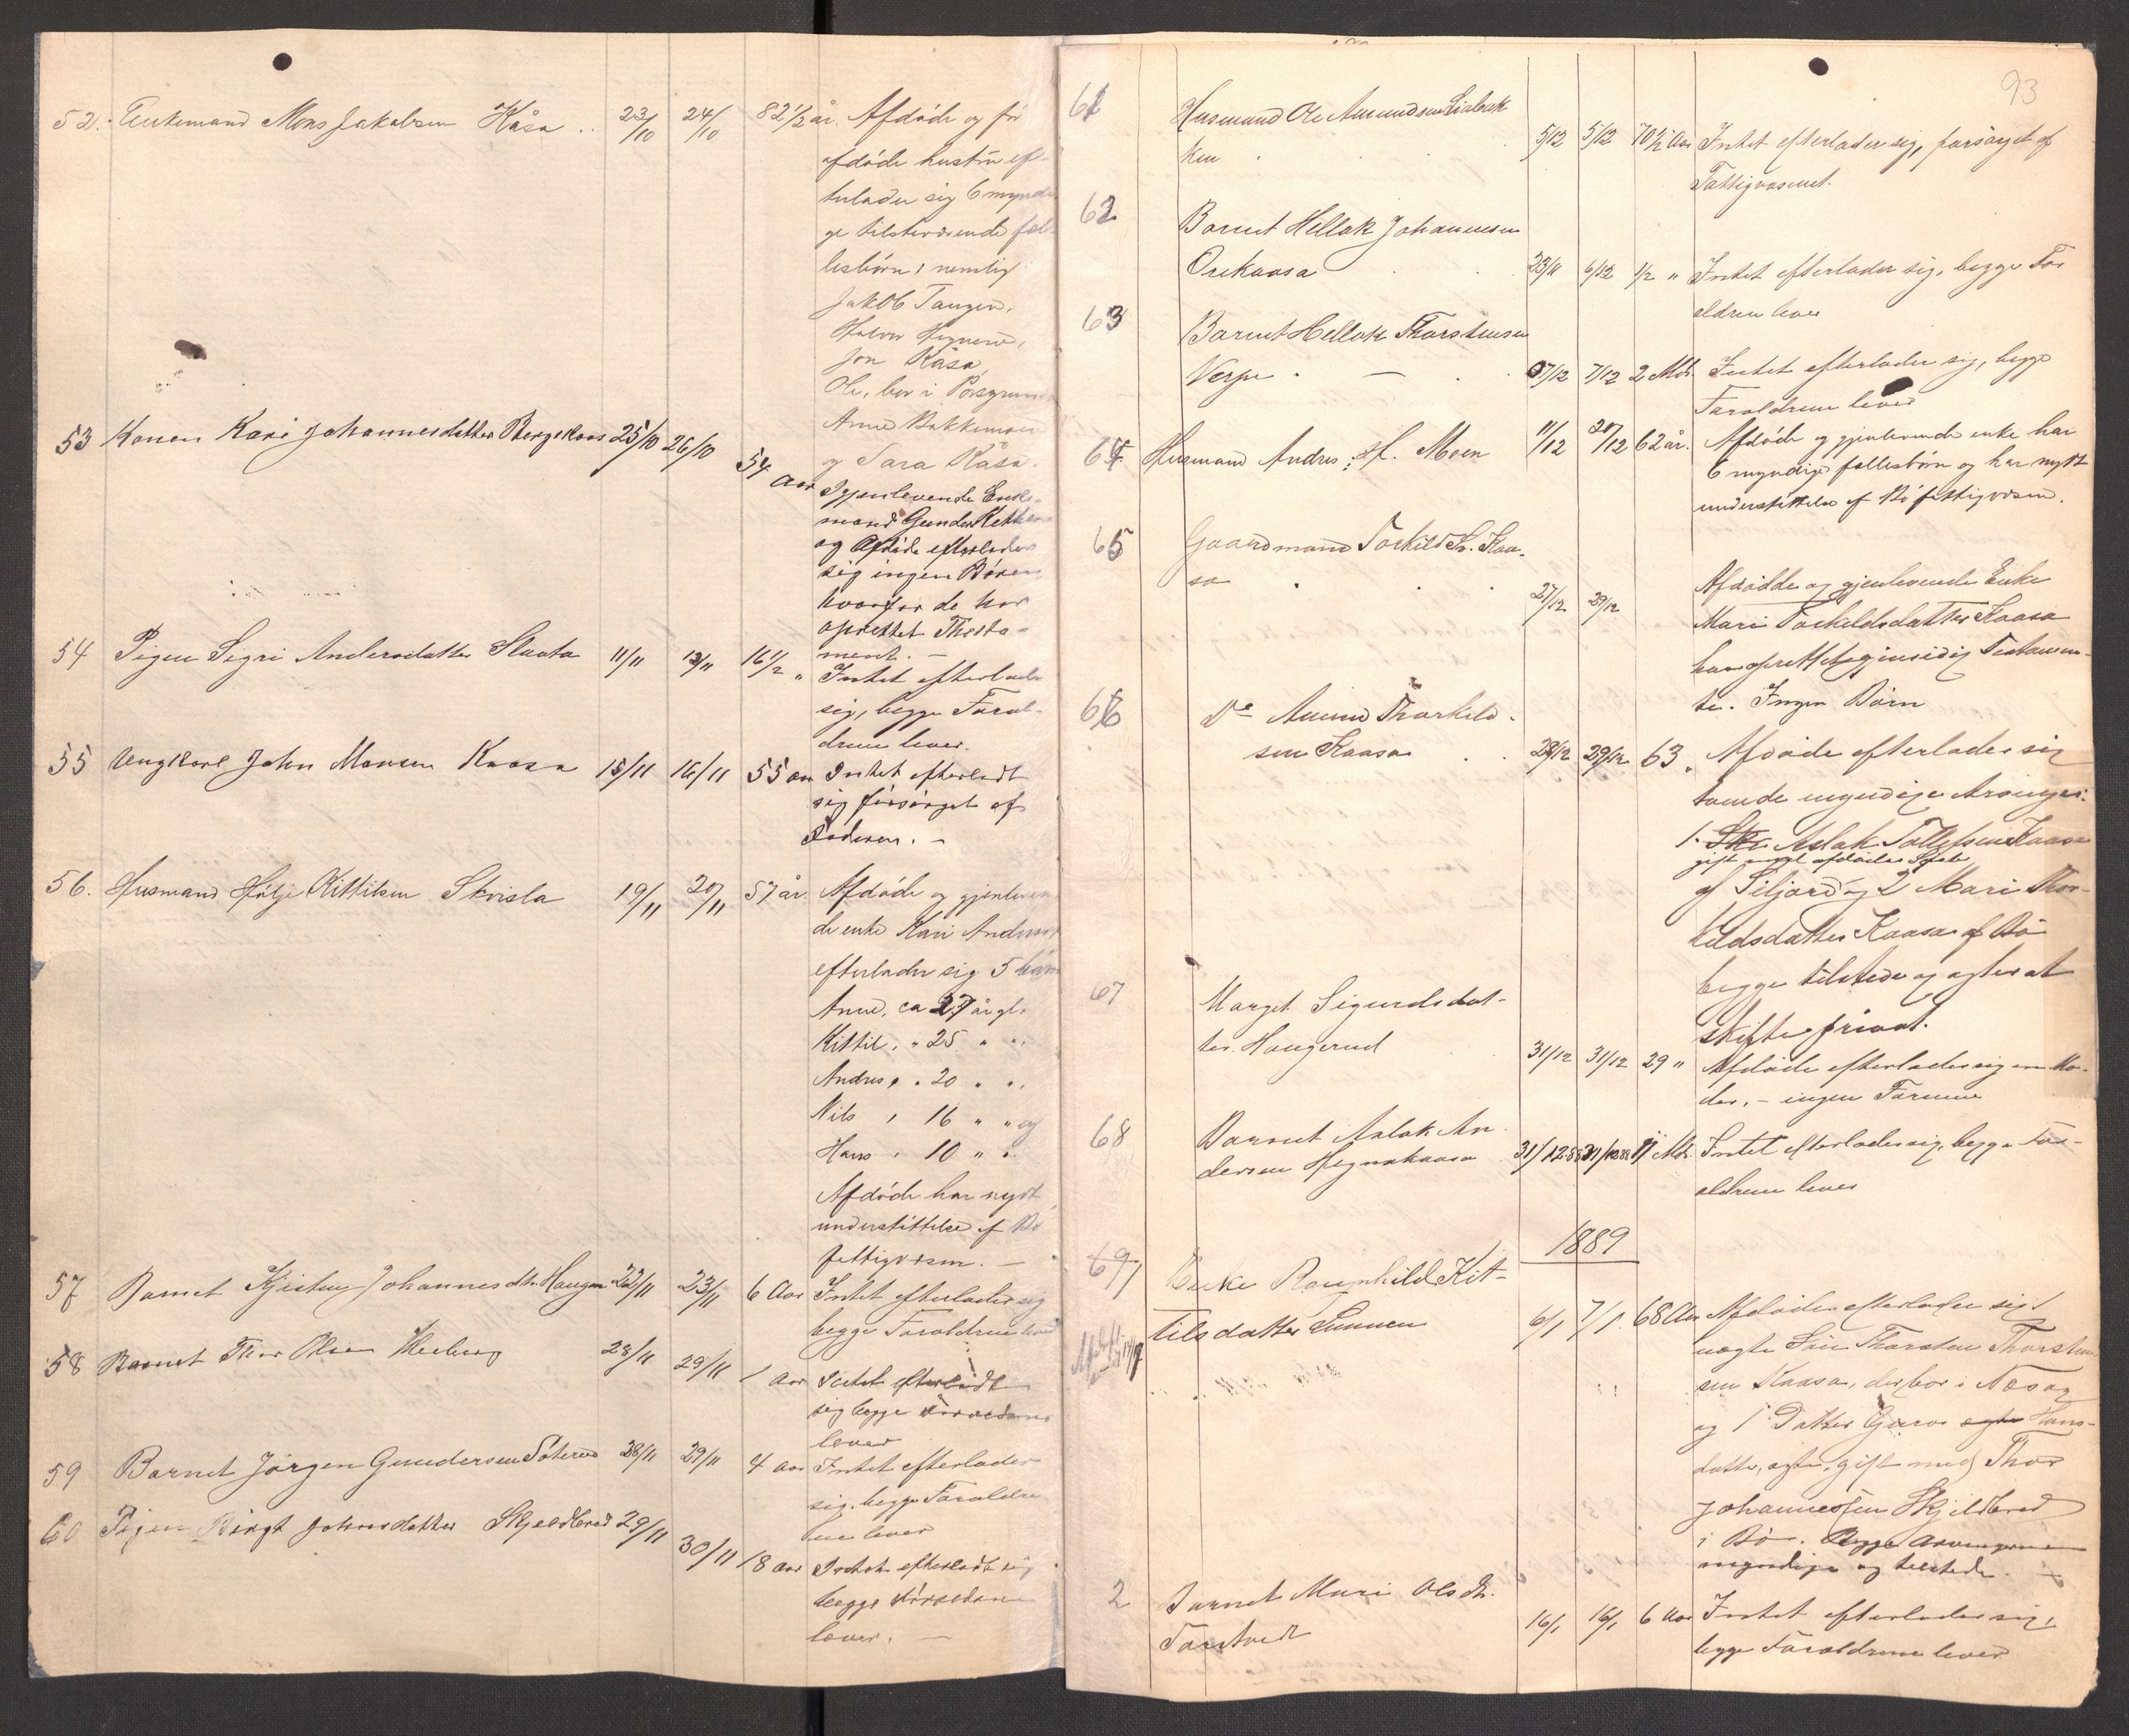 52. Enkemand Mons Jakobsen Kåsa .. 23/10 24/10 82 1/2 år. Afdøde og før
afdøde hustru ef-
terlader sig 6 myndi
ge tilstedeværende fæl
lesbørn, nemlig
Jakob Tangen,
Halvor
Jon Kåsa,
Ole, bor i Porsgrun
Anne Bakkemoen
og Sara Kåsa.
53 Konen Kari Johannesdatter Bergskaas 25/10 26/10 54 Aar
Igjenlevende Enke-
mand Gunder
og Afdøde efterlader
sig ingen Børn
hvorfor de har
oprettet Thesta-
ment. -
54 Pigen Sigri Andersdatter Slaata 11/11 12/11 16 1/2 " Intet efterlader
sig, begge Foræl-
drene lever.
55 Ungkarl John Monsen Kaasa 15/11 16/11 55 aar Intet efterladt
sig forsørget af
Faderen. -
56. Husmand Hølje Kittilsen Skvisla 19/11 20/11 57 år. Afdøde og gjenleven
de enke Kari Anders
efterlader sig 5 børn
Anne, ca 27 år gl.
Kittil, " 25 " "
Andres, " 20 " "
Nils, 16 " " og
Hans, 10 " "
Afdøde har nydt
understøttelse af Bø
fattigvæsen. -
57 Barnet Kjisten Johannesdtr Haugen 22/11 23/11 6 Aar Intet efterlader sig
begge Forældrene lever
58 Barnet Thor Olsen 28/11 29/11 1 Aar Intet efterladt
sig begge Forældrene
lever
59 Barnet Jørgen Gundersen 28/11 29/11 4 aar Intet efterlader
sig. begge Forældre
ne lever
60 Pigen Birgt Johnsdatter 29/11 30/11 18 aar Intet efterladt sig
begge Forældrene
lever. -
93
61 Husmand Ole Amundsen Liabak
ken 5/12 5/12 70 1/2 Aar Intet efterlader sig, forsørget af
Fattigvæsenet.
62 Barnet Hellek Johannesen
Orekaasa 23/11 6/12 1/2 " Intet efterlader sig, begge For
ældrene lever
63 Barnet Hellek Thorstensen
Verpe 7/12 7/12 2 Mdr. Intet efterlader sig, begge
Forældrene lever
64 Husmand Andres Moen 11/12 20/12 62 år. Afdøde og gjenlevende enke har
6 myndige fællesbørn og har nydt
understøttelse af Bø fattigvæsen.
65 Gaardmand Torkild Kaa-
sa 27/12 29/12 Afdødde og gjenlevende Enke
Mari Torkildsdatter Kaasa
har oprettet gjensidig Testamen-
te. Ingen Børn
66 Do Amund Thorkild-
sen Kaasa 28/12 29/12 63 " Afdøde efterlader sig
tvende myndige Arvinger:
1. Aslak Tollefsen Kaasa
gift med afdødes
af Siljord og 2 Mari Thor-
kildsdatter Kaasa af Bø
begge tilstede og agter at
skifte privat.
67 Marget Sigurdsdat-
ter Haugerud 31/12 31/12 29 " Afdøde efterlader sig en Mo-
der, - ingen Formue
68 Barnet Aslak An-
dersen Hegnakaasa 31/12 88 31/12 88 Mdr. Intet efterlader sig, begge For-
ældrene lever
1889
69 1 Enke Ragnhild Kit-
tilsdatter Sunnen 6/1 7/1 68 Aar Afdøde efterlader sig 1
uægte Søn Thorsten Thorsten
sen Kaasa, der bor i
og 1 Datter Guro Hans-
datter, ægte, gift med Thor
Johannessen Skjeldbred
i Bø. Begge Arvingerne
myndige og tilstede. -
2 Barnet Mari Olsdtr.
Torstvedt 16/1 16/1 6 Aar Intet efterlader sig,
begge Forældrene lever